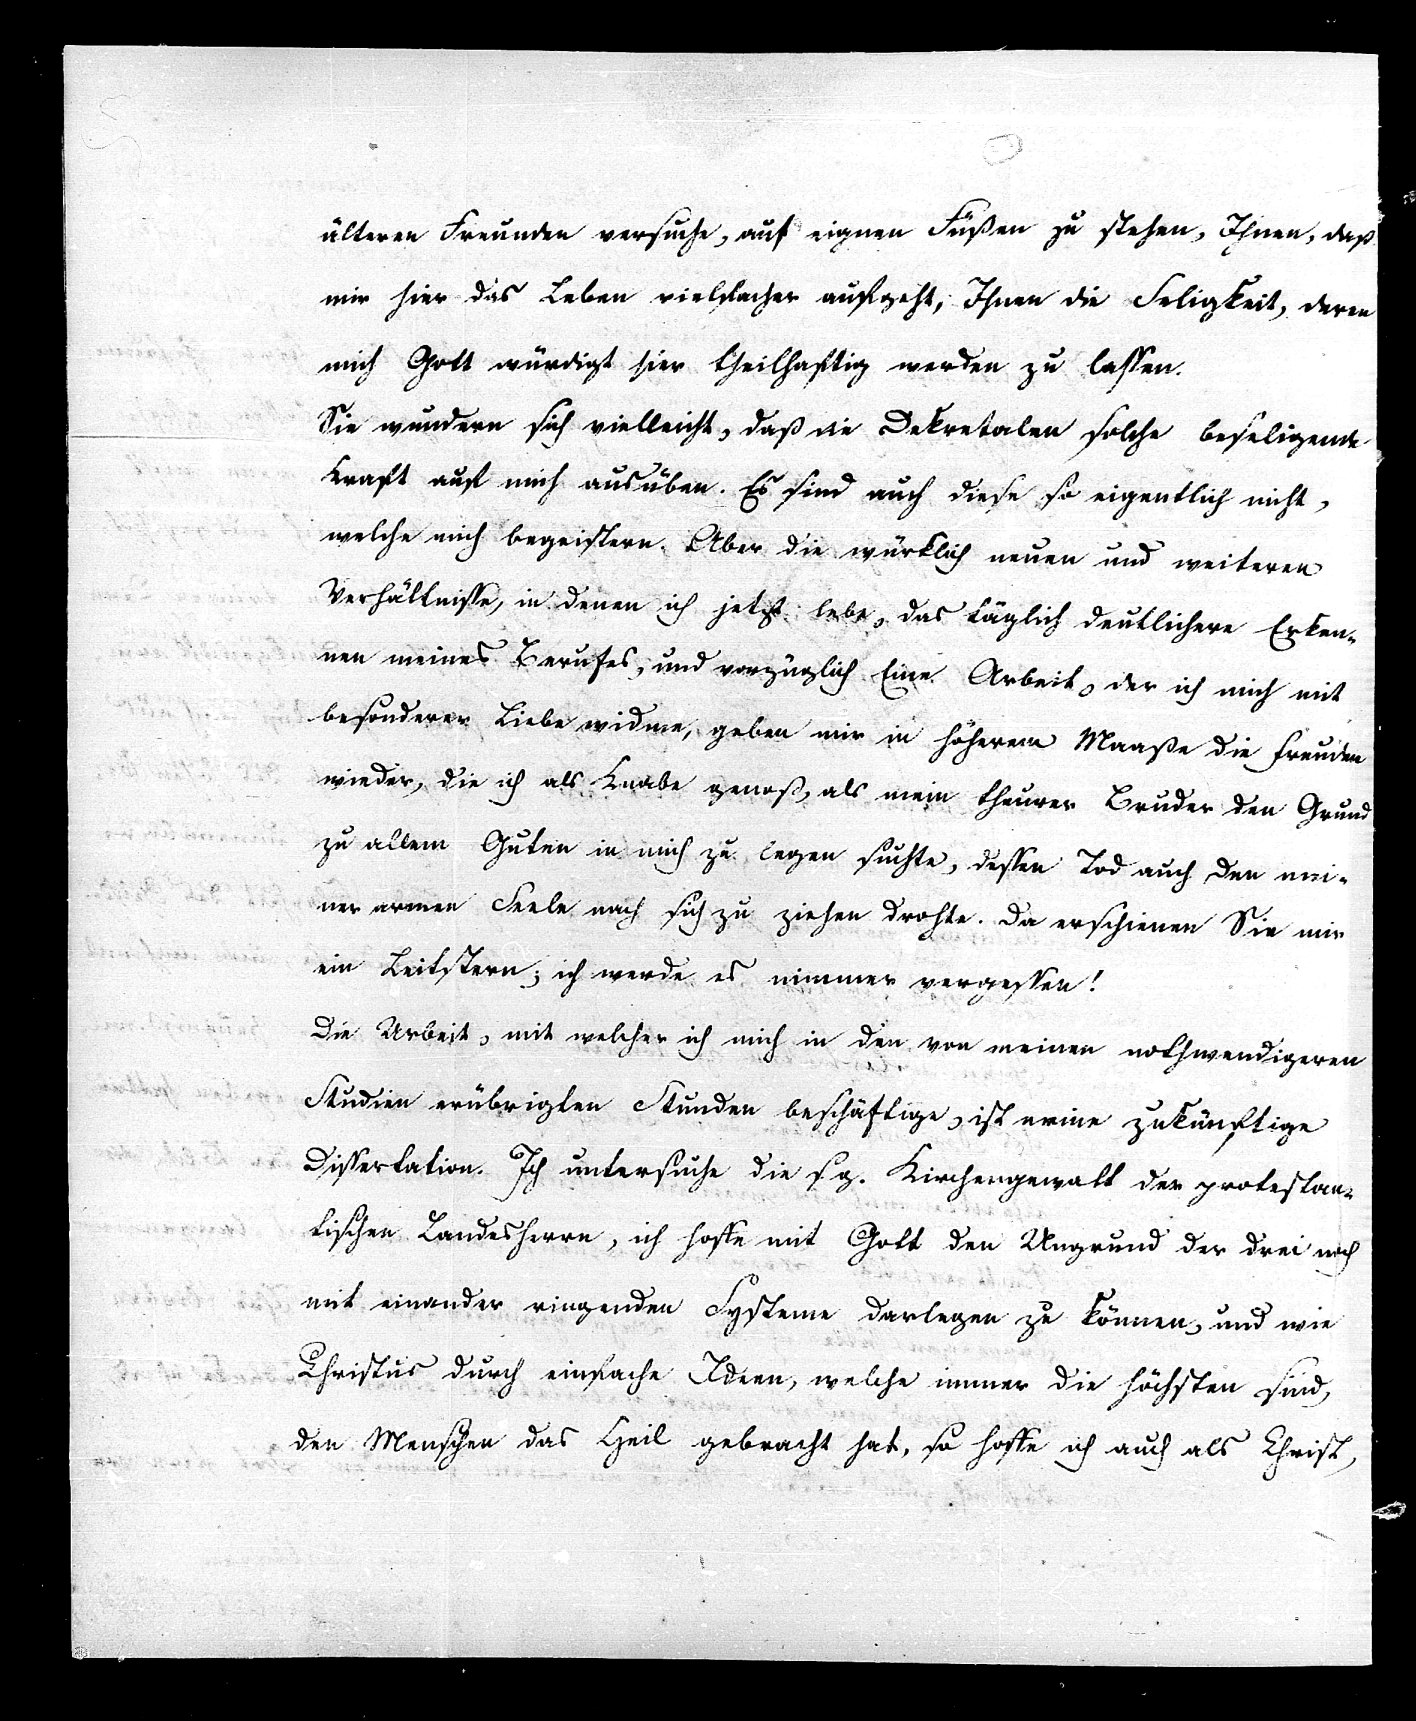 älteren Freunden versuche, auf eignen Füßen zu stehen, Ihnen, daß
mir hier das Leben vielfacher aufgeht, Ihnen die Seligkeit, deren
mich Gott würdigt hier theilhaftig werden zu lassen.
Sie wundern sich vielleicht, daß die Dekretalen solche beseligende
Kraft auf mich ausüben. Es sind auch diese so eigentlich nicht,
welche mich begeistern. Aber die würklich neuen und weiteren
Verhältnisse, in denen ich jetzt lebe, das täglich deutlichere Erken-
nen meines Berufes, und vorzüglich Eine Arbeit, der ich mich mit
besonderer Liebe widme, geben mir in höherem Maaße die Freuden
wieder, die ich als Knabe genoß, als mein theurer Bruder den Grund
zu allem Guten in mich zu legen suchte, dessen Tod auch den mei-
ner armen Seele nach sich zu ziehen drohte. Da erschienen Sie mir
ein Leitstern; ich werde es nimmer vergessen!
Die Arbeit, mit welcher ich mich in den von meinen nothwendigeren
Studien erübrigten Stunden beschäftige, ist meine zukünftige
Dissertation. Ich untersuche die s. g. Kirchengewalt der protestan-
tischen Landesherrn, ich hoffe mit Gott den Ungrund der drei noch
mit einander ringenden Systeme darlegen zu können, und wie
Christus durch einfache Ideen, welche immer die höchsten sind,
den Menschen das Heil gebracht hat, so hoffe ich auch als Christ,